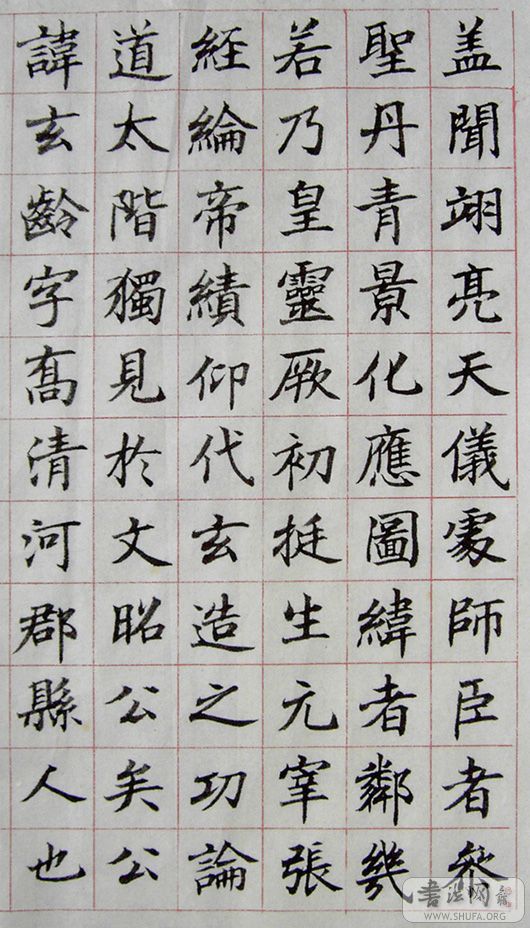 盖聞翊亮天儀處師臣者參
聖丹青景化應圖緯者鄰幾
若乃皇靈厥初挺生元宰張
經綸帝績仰代玄造之功論
道太階獨見於文昭公矣公
諱玄齡字喬清河郡縣人也
書法网
WWW.SHUFA.ORG